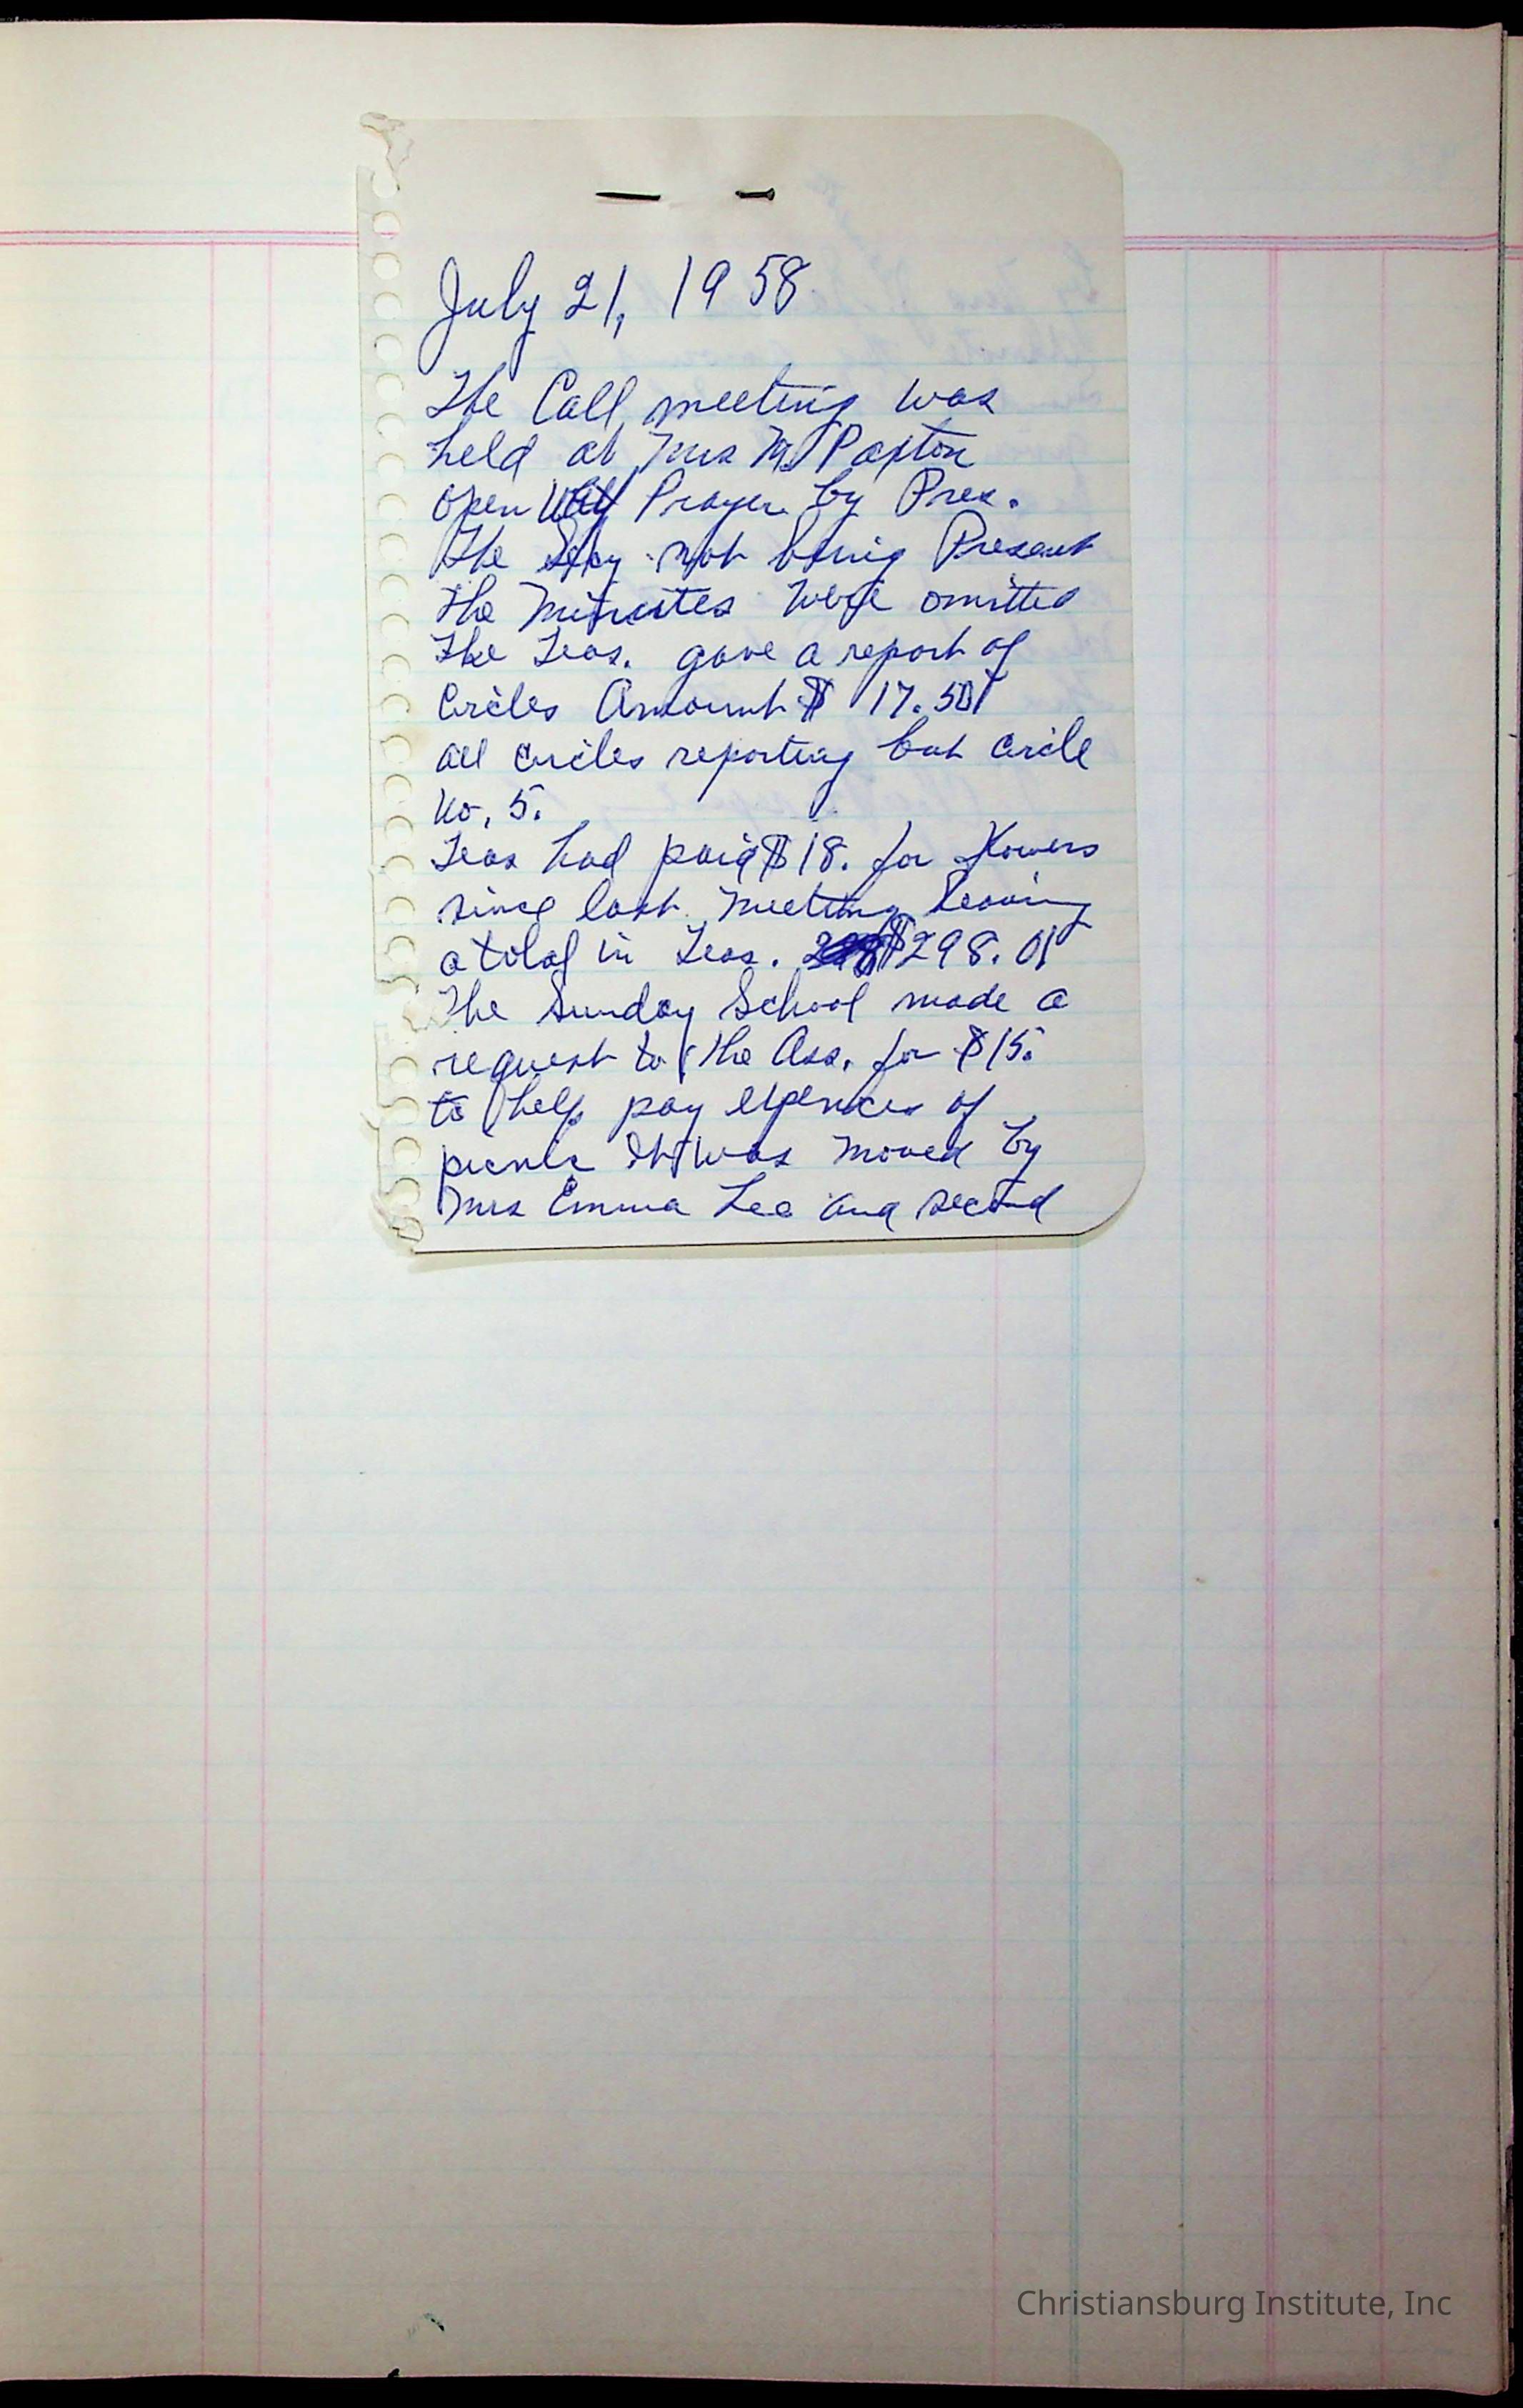 July 21, 1958
The Call meeting was
held at Mrs M. Paxton
open With Prayer by Pres.
The Secy not being Present
the Minutes were omitted
The Teas. gave a report of
Circles Amount $ 17.50
all circles reporting but circle
No. 5.
Teas had paid $18. for flowers
since last meeting leaving
a total in Teas. $298.01
The Sunday School made a
request to the Ass. for $15.
to help pay expences of
picnic It was moved by
Mrs Emma Lee and second
Christiansburg Institute, Inc